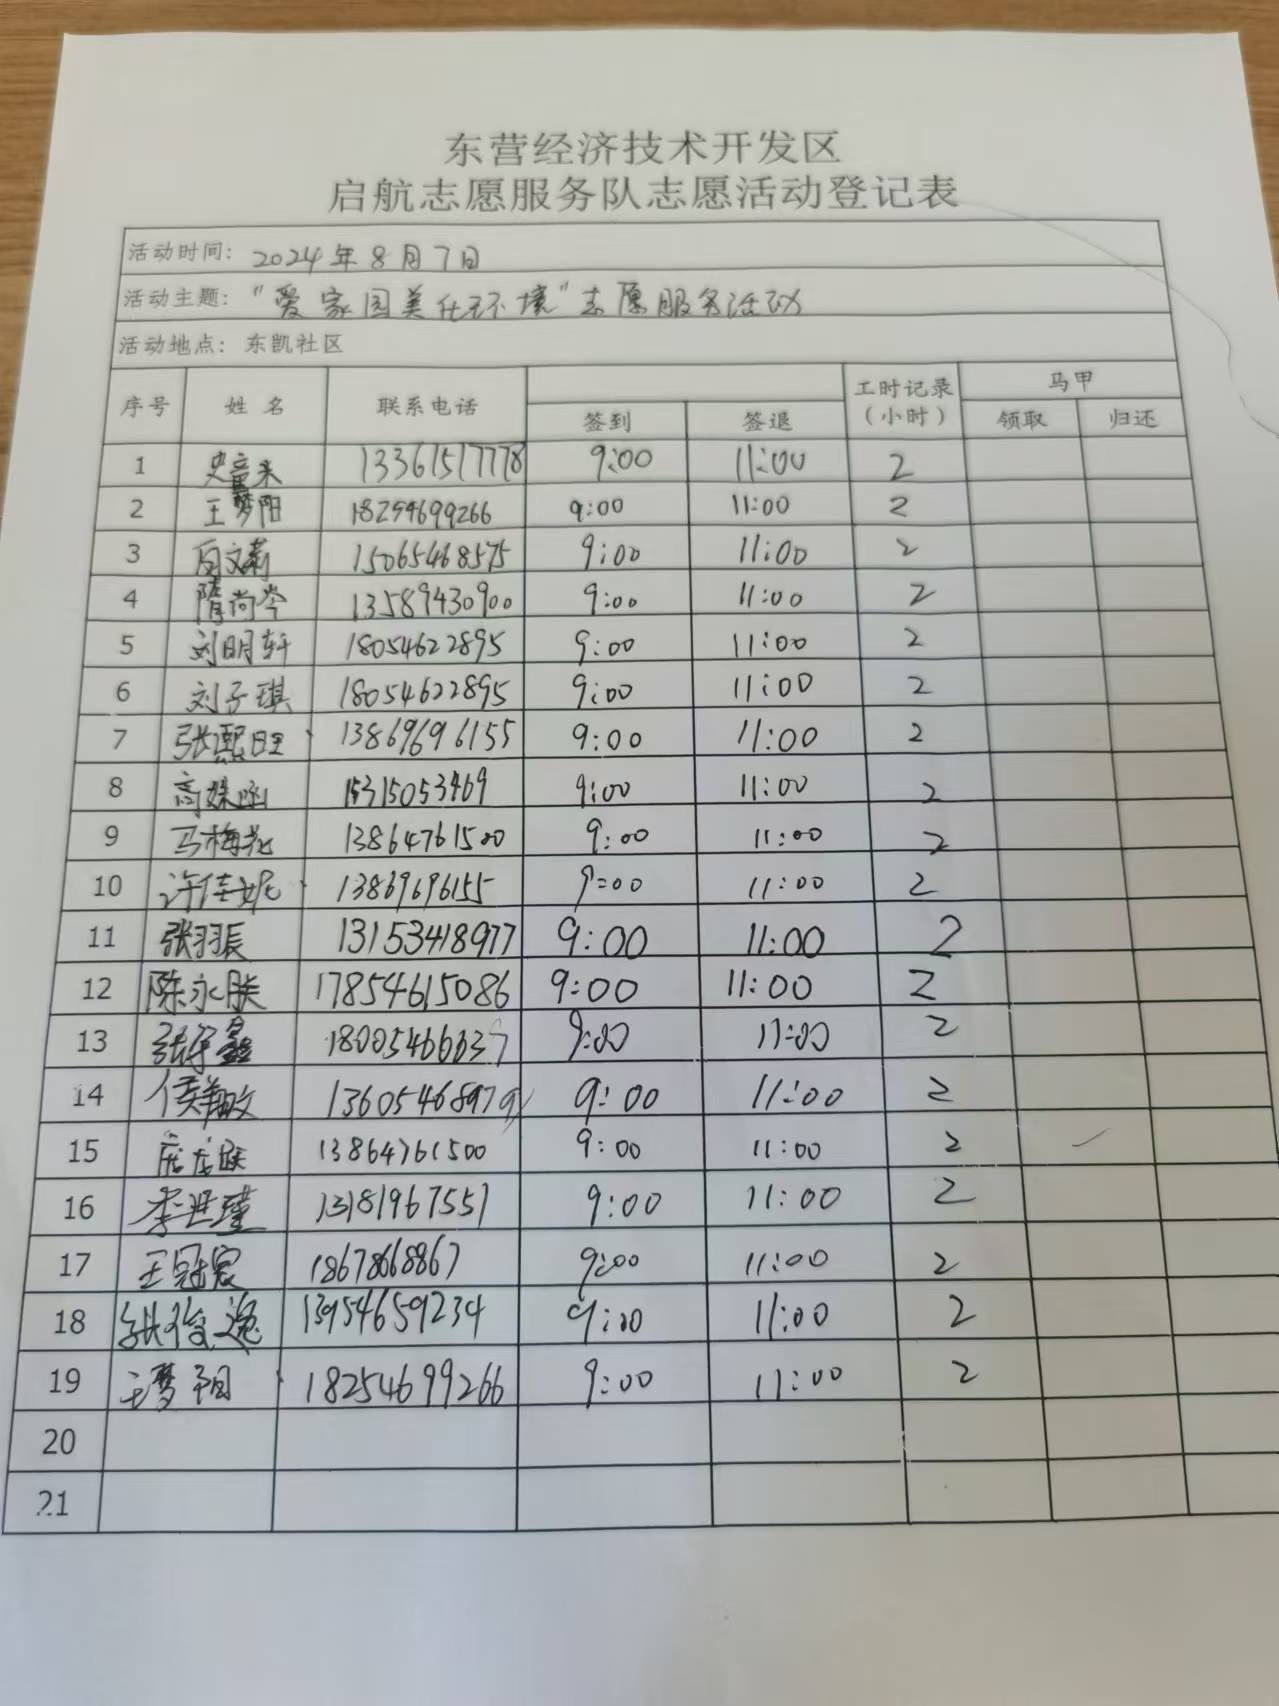 东营经济技术开发区
启航志愿服务队志愿活动登记表
活动时间: 2024年8月7日
活动主题: "爱家园美化环境"志愿服务活动
活动地点: 东凯社区
序号 姓名 联系电话 签到 签退 工时记录(小时) 马甲 领取 归还
1 13361517778 9:00 11:00 2
2 王梦阳 18254699266 9:00 11:00 2
3 15065468575 9:00 11:00 2
4 隋尚岑 13589430900 9:00 11:00 2
5 刘明轩 18054622895 9:00 11:00 2
6 刘子琪 18054622895 9:00 11:00 2
7 张熙旺 13869696155 9:00 11:00 2
8 高姝函 15315053469 9:00 11:00 2
9 马梅花 13864761500 9:00 11:00 2
10 许佳妮 13869696155 9:00 11:00 2
11 张羽辰 13153418977 9:00 11:00 2
12 陈永朕 17854615086 9:00 11:00 2
13 9:00 11:00 2
14 侯翔政 9:00 11:00 2
15 13864761500 9:00 11:00 2
16 李世瑾 13181967551 9:00 11:00 2
17 王冠宸 18678668867 9:00 11:00 2
18 13954659234 9:00 11:00 2
19 王梦阳 18254699266 9:00 11:00 2
20
21